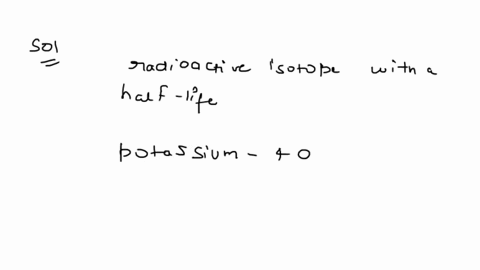 Sol
radioactive isotope with a
half-life
potassium - 40